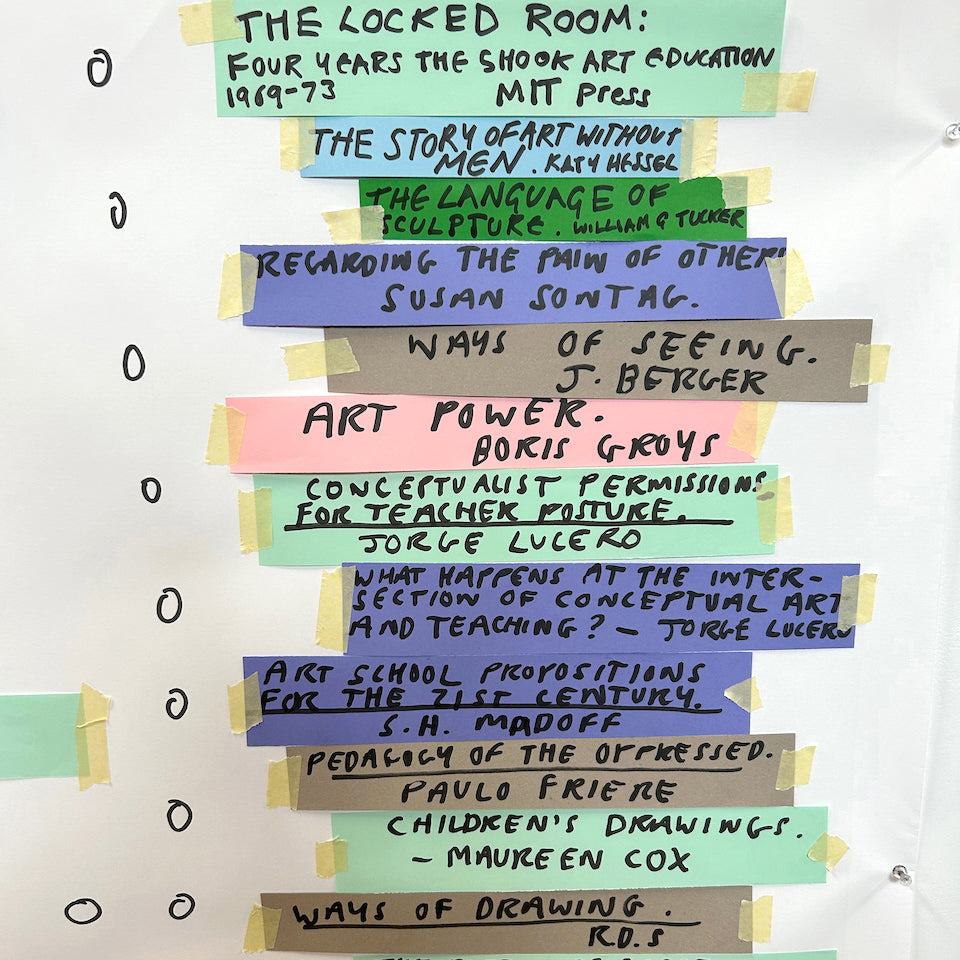 THE LOCKED ROOM:
FOUR YEARS THE SHOOK ART EDUCATION
1969-73 MIT Press
THE STORY OF ART WITHOUT
MEN. KATY HESSEL
THE LANGUAGE OF
SCULPTURE. WILLIAM G TUCKER
REGARDING THE PAIN OF OTHERS
SUSAN SONTAG.
WAYS OF SEEING.
J. BERGER
ART POWER.
BORIS GROYS
CONCEPTUALIST PERMISSIONS
FOR TEACHER POSTURE.
JORGE LUCERO
WHAT HAPPENS AT THE INTER-
SECTION OF CONCEPTUAL ART
AND TEACHING? - JORGE LUCERO
ART SCHOOL PROPOSITIONS
FOR THE 21ST CENTURY.
S.H. MADOFF
PEDAGOGY OF THE OPPRESSED.
PAULO FRIERE
CHILDREN'S DRAWINGS.
- MAUREEN COX
WAYS OF DRAWING.
R.D.S